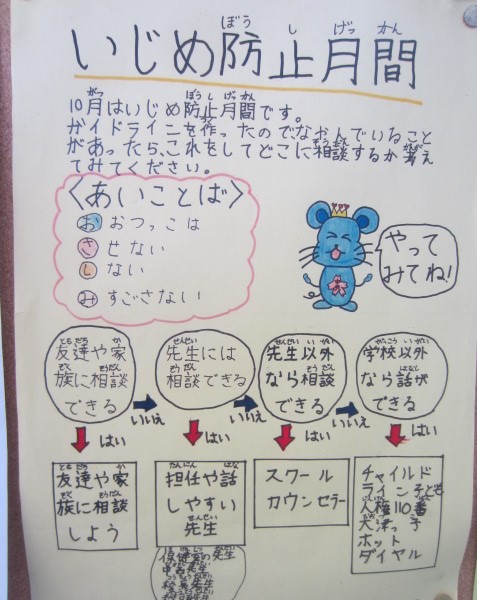 いじめ防止月間
10月はいじめ防止月間です。
ガイドラインを作ったのでなやんでいること
があったら、これをしてどこに相談するか考え
てみてください。
〈あいことば〉
お おつっこは
さ させない
し ない
み すごさない
やって
みてね!
友達や家
族に相談
できる
いいえ
先生には
相談できる
いいえ
先生以外
なら相談
できる
いいえ
学校以外
なら話が
できる
はい
はい
はい
はい
友達や家
族に相談
しよう
担任や話
しやすい
先生
保健室の先生
スクール
カウンセラー
チャイルド
ライン子ども
人権110番
大津っ子
ホット
ダイヤル